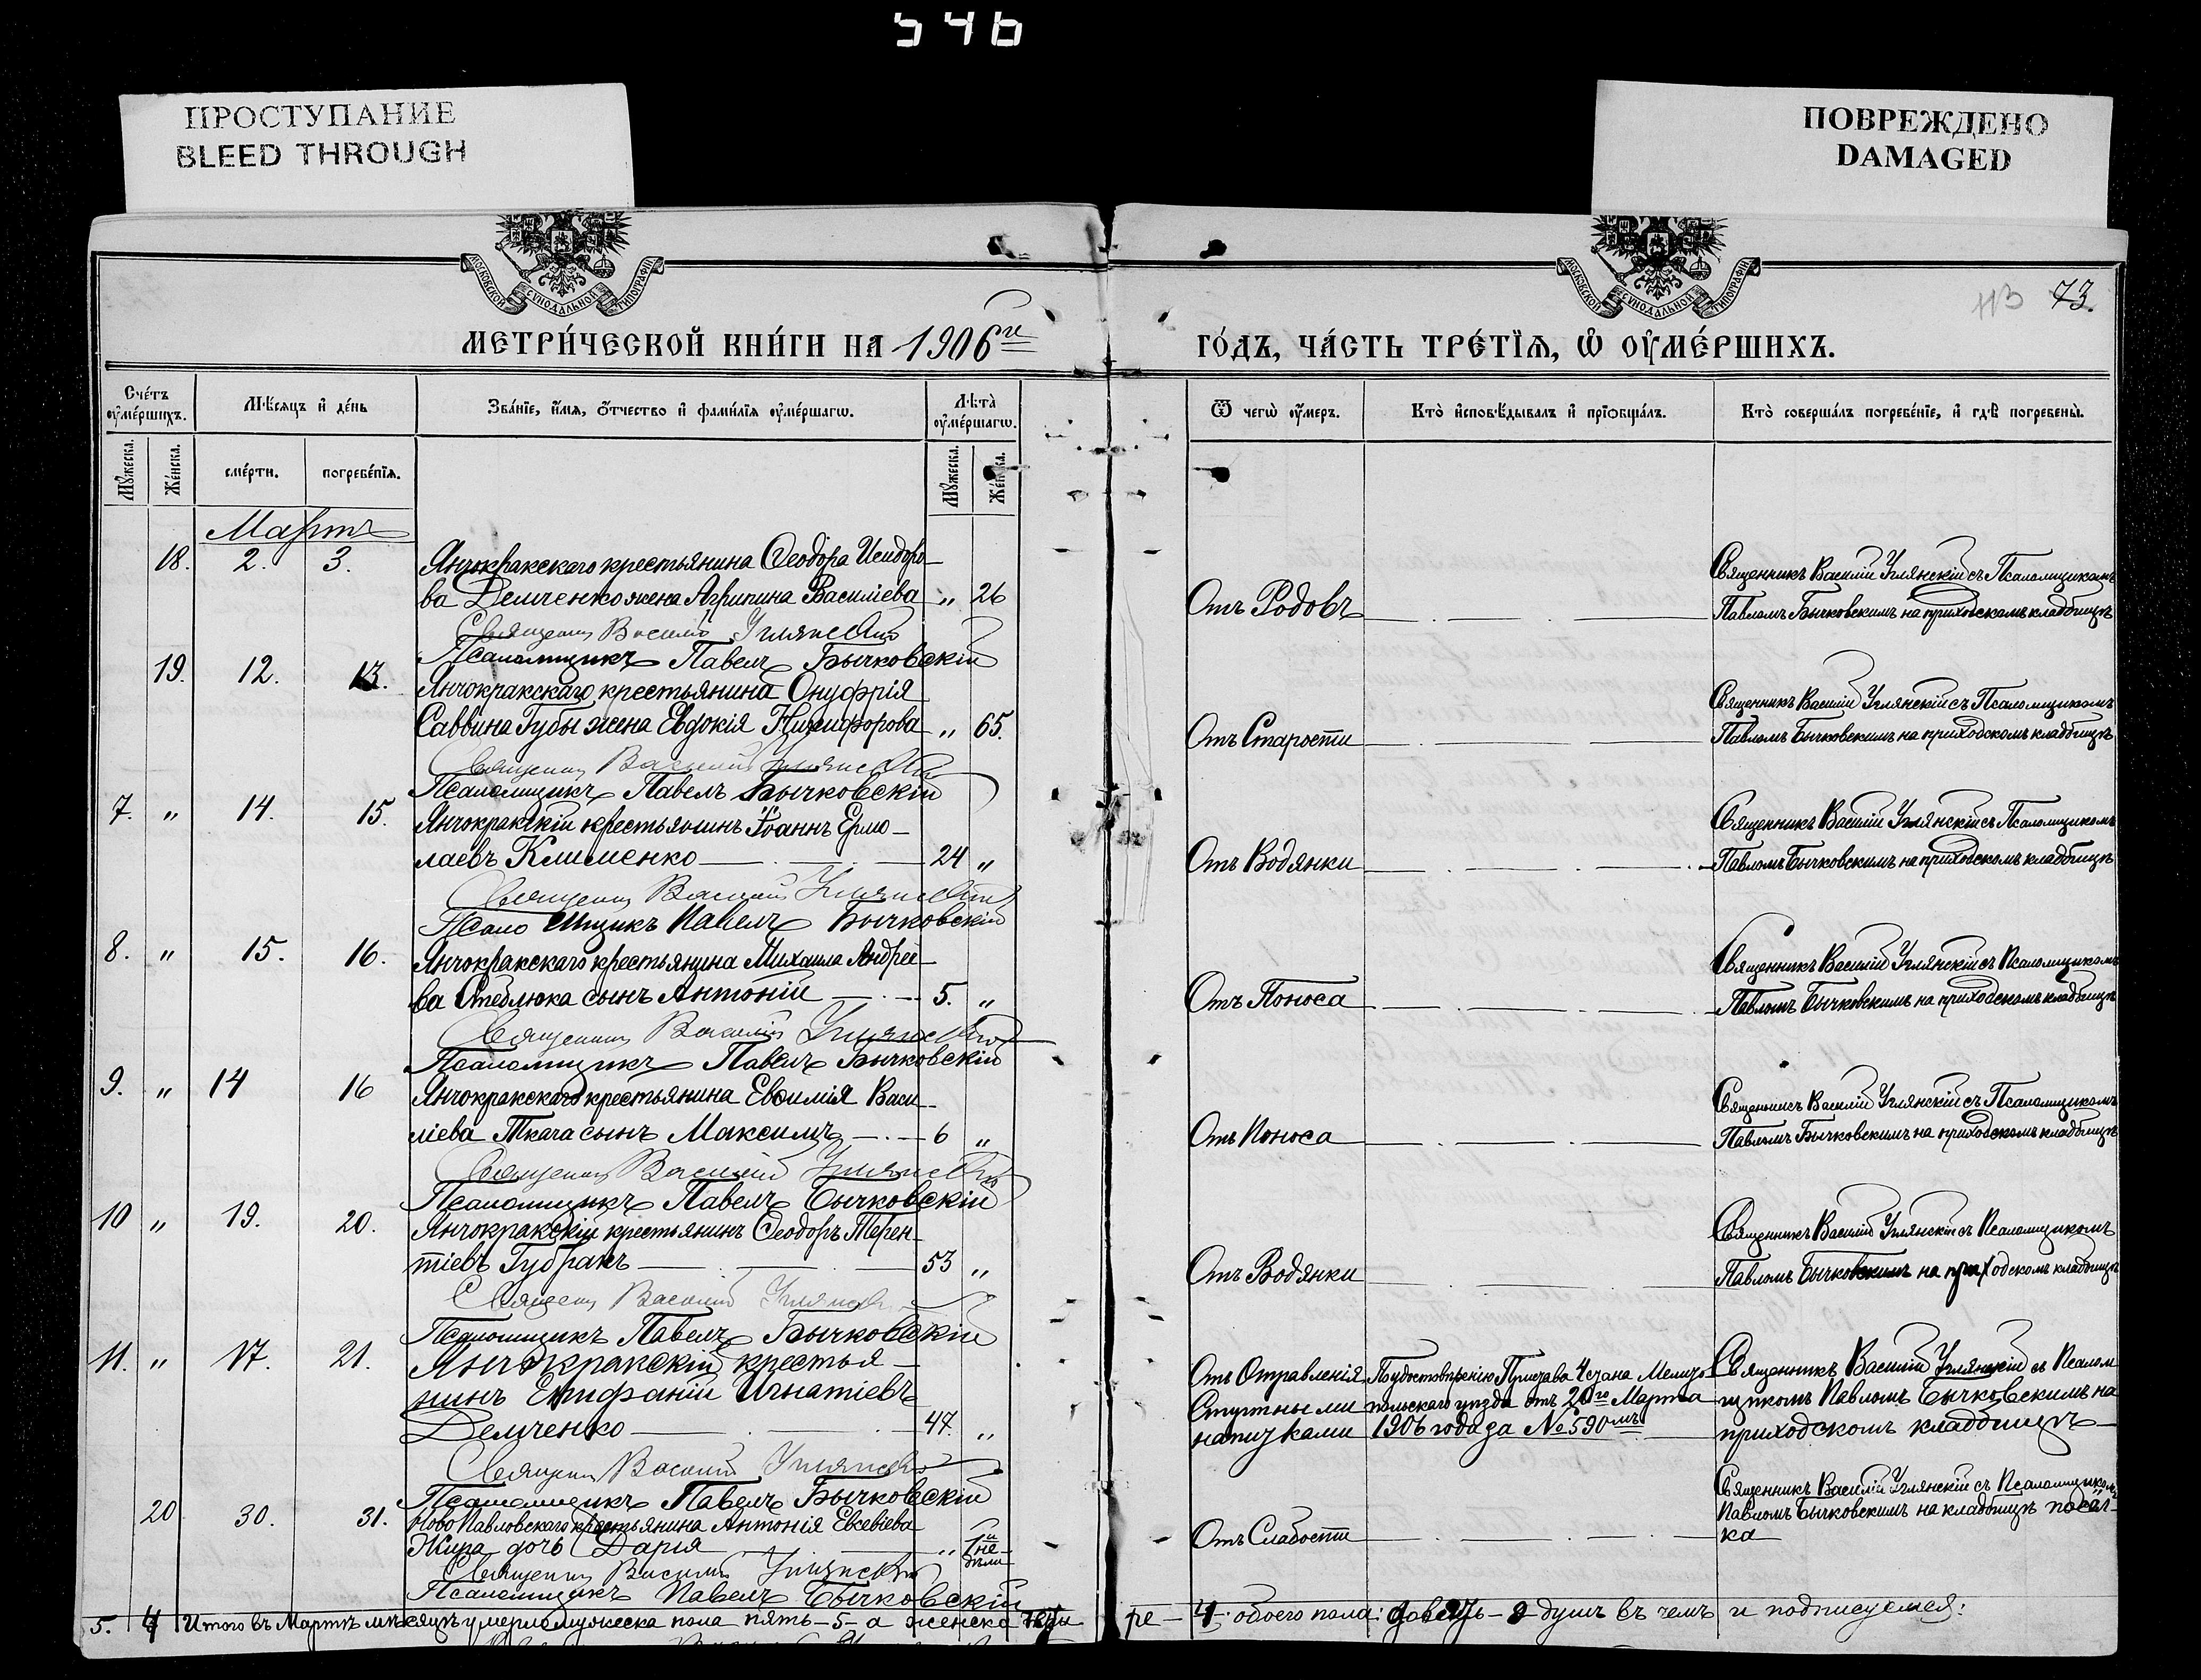 546
ПРОСТУПАНИЕ
BLEED THROUGH
ПОВРЕЖДЕНО
DAMAGED
МОСКОВСКОЙ СѴНОДАЛЬНОЙ ТИПОГРАФІИ
МОСКОВСКОЙ СѴНОДАЛЬНОЙ ТИПОГРАФІИ
113 73.
МЕТРИ́ЧЕСКОЙ КНИ́ГИ НА 1906й ГО́ДЪ, ЧА́СТЬ ТРЕ́ТЇѦ, Ѡ҆ ОУ҆МЕ́РШИХЪ.
Сче́тъ оу҆ме́ршихъ.
Мꙋ́жеска.
Же́нска.
Мѣ́сяцъ и҆ де́нь
сме́рти.
погребе́нїѧ.
Зва́нїе, и҆́мѧ, ѻ҆́тчество и҆ фами́лїѧ оу҆ме́ршагѡ.
Лѣ́та̀ оу҆ме́ршагѡ.
Мꙋ́жеска.
Же́нска.
Ѿ чегѡ̀ оу҆́меръ.
Кто̀ и҆сповѣ́дывалъ и҆ прїѻбща́лъ.
Кто̀ соверша́лъ погребе́нїе, и҆ гдѣ̀ погребены̀.
Мартъ
18. 2. 3. Янчокракскаго крестьянина Ѳеодора Исидоро-
ва Демченко жена Агрипина Василіева " 26 Отъ Родовъ
Священникъ Василій Углянскій съ Псаломщикомъ
Павломъ Бычковскимъ на приходскомъ кладбищѣ
Священникъ Василій Углянскій
Псаломщикъ Павелъ Бычковскій
19. 12. 13. Янчокракскаго крестьянина Онуфрія
Саввина Губы жена Евдокія Никифорова " 65. Отъ Старости
Священникъ Василій Углянскій съ Псаломщикомъ
Павломъ Бычковскимъ на приходскомъ кладбищѣ
Священникъ Василій Углянскій
Псаломщикъ Павелъ Бычковскій
7. " 14. 15. Янчокракскій крестьянинъ Іоаннъ Ермо-
лаевъ Клименко 24 " Отъ Водянки
Священникъ Василій Углянскій съ Псаломщикомъ
Павломъ Бычковскимъ на приходскомъ кладбищѣ
Священникъ Василій Углянскій
Псаломщикъ Павелъ Бычковскій
8. " 15. 16. Янчокракскаго крестьянина Михаила Андрее-
ва Стеблюка сынъ Антоній 5. " Отъ Поноса
Священникъ Василій Углянскій съ Псаломщикомъ
Павломъ Бычковскимъ на приходскомъ кладбищѣ
Священникъ Василій Углянскій
Псаломщикъ Павелъ Бычковскій
9. " 14 16 Янчокракскаго крестьянина Евѳимія Васи-
ліева Ткача сынъ Максимъ 6 " Отъ Поноса
Священникъ Василій Углянскій съ Псаломщикомъ
Павломъ Бычковскимъ на приходскомъ кладбищѣ
Священникъ Василій Углянскій
Псаломщикъ Павелъ Бычковскій
10 " 19. 20. Янчокракскій крестьянинъ Ѳеодоръ Терен-
тіевъ Губракъ 53 " Отъ Водянки
Священникъ Василій Углянскій съ Псаломщикомъ
Павломъ Бычковскимъ на приходскомъ кладбищѣ
Священникъ Василій Углянскій
Псаломщикъ Павелъ Бычковскій
11. " 17. 21. Янчокракскій крестья-
нинъ Епифаній Игнатіевъ
Демченко 47. "
Отъ Отравленія
Спиртными
напитками
По удостовѣренію Пристава 4 стана Мелито-
польскаго уѣзда отъ 20го Марта
1906 года за № 590мъ
Священникъ Василій Углянскій съ Псалом
щикомъ Павломъ Бычковскимъ на
приходскомъ кладбищѣ
Священникъ Василій Углянскій
Псаломщикъ Павелъ Бычковскій
20 30. 31. Ново Павловскаго крестьянина Антонія Евсевіева
Жира дочь Дарія " 1й не-
дѣли
Отъ Слабости
Священникъ Василій Углянскій съ Псаломщикомъ
Павломъ Бычковскимъ на кладбищѣ посел-
ка
Священникъ Василій Углянскій
Псаломщикъ Павелъ Бычковскій
5. 4 Итого въ Мартѣ мѣсяцѣ умерло мужеска пола пять - 5 - а женска четы
ре - 4. обоего пола: девять - 9 душъ въ чемъ и подписуемся: